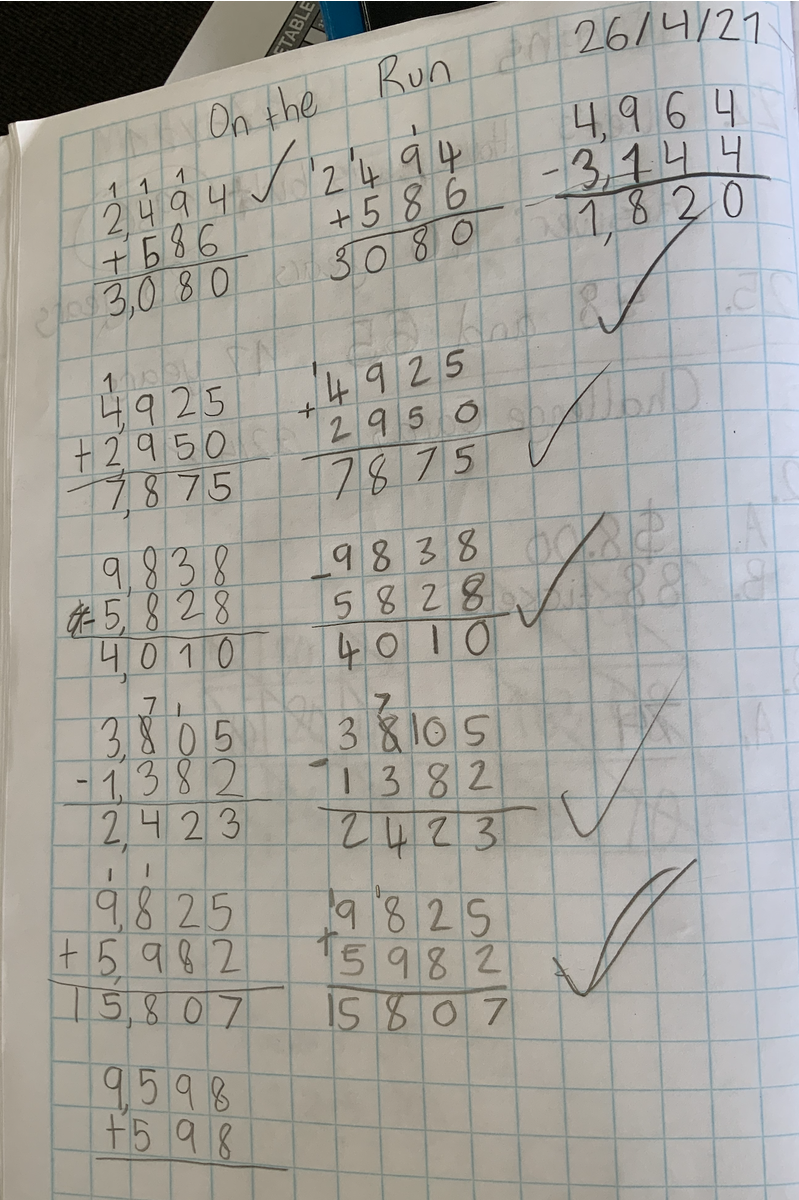 26/4/21
On the Run
1 1 1
2,494
+586
3,080
1 1 1
2494
+586
3080
4,964
-3,144
1,820
1
4,925
+2950
7,875
1
4925
+2950
7875
9,838
-5,828
4,010
-9838
5828
4010
7 1
3,805
-1,382
2,423
7
38105
-1382
2423
1 1
9,825
+5,982
15,807
1 1
9825
+5982
15807
9,598
+598